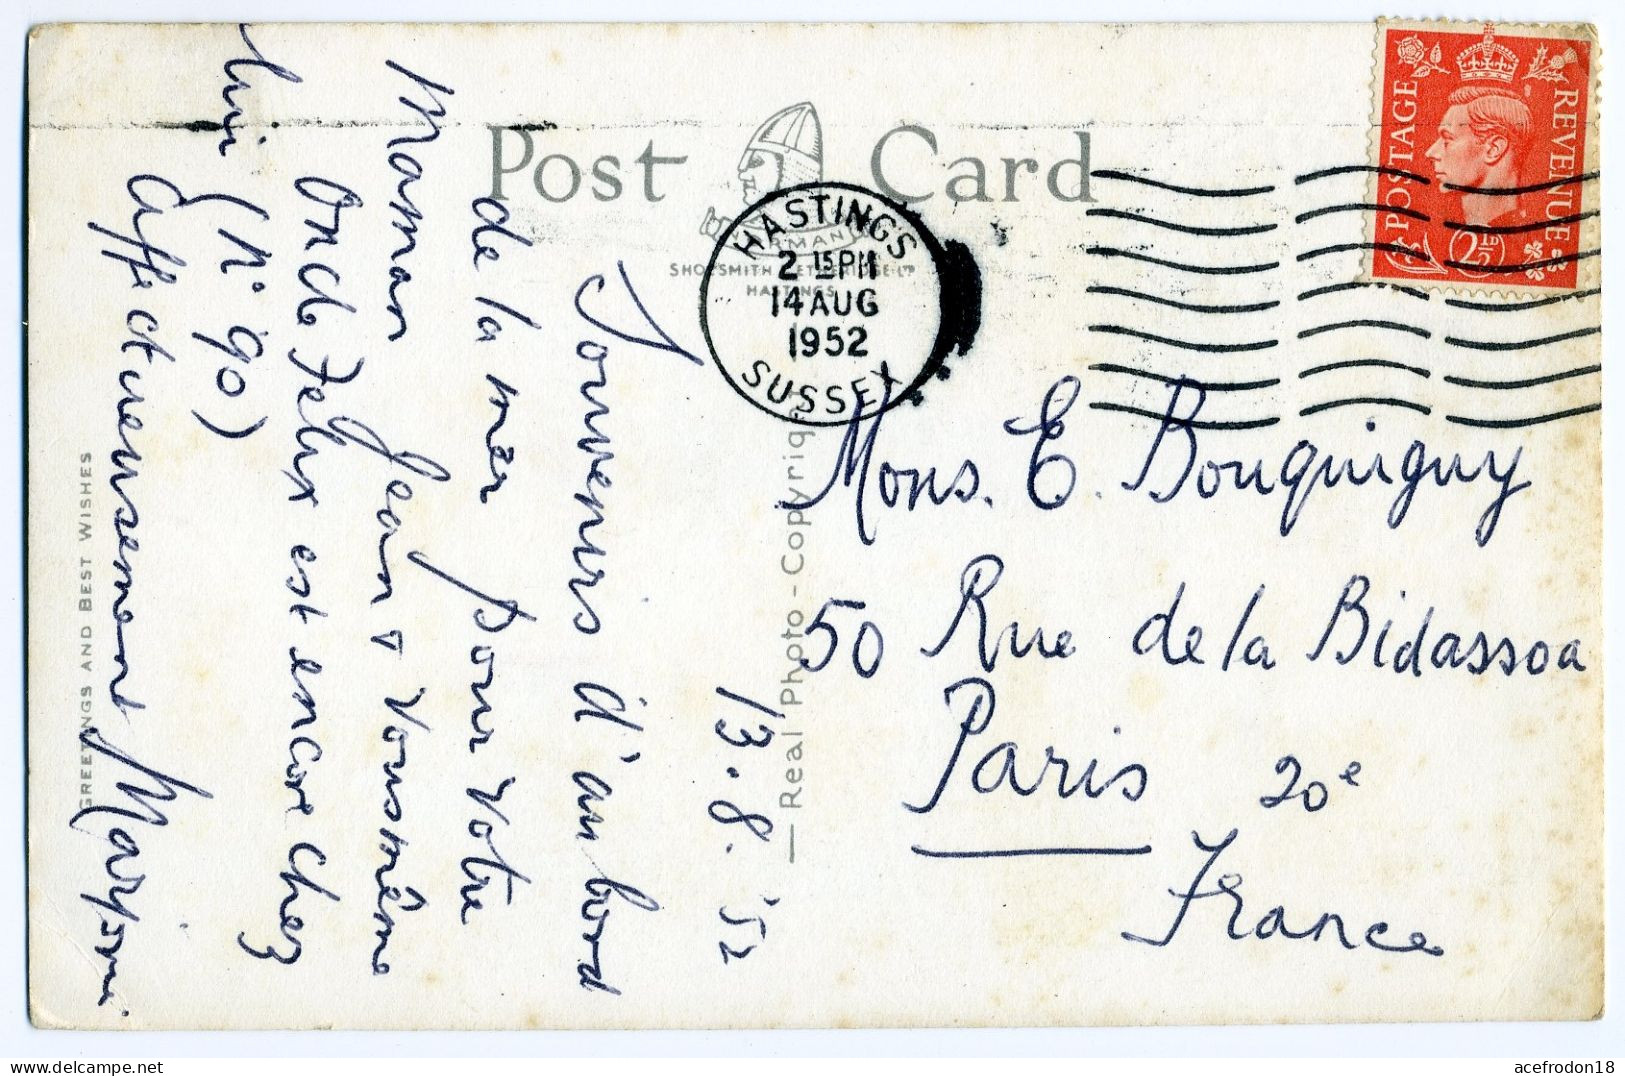 Post Card
NORMAN
SHOESMITH & ETHERIDGE LTD
HASTINGS
HASTINGS
2 15 PM
14 AUG
1952
SUSSEX
POSTAGE
REVENUE
2½D
GREETINGS AND BEST WISHES
— Real Photo - Copyright
13.8.'52
Souvenirs d'au bord
de la mer pour votre
Maman Jean + vousmême
Oncle Felix est encore chez
lui (N° 90)
Affectueusement
Mons. E. Bouquiguy
50 Rue de la Bidassoa
Paris 20e
France
acefrodon18